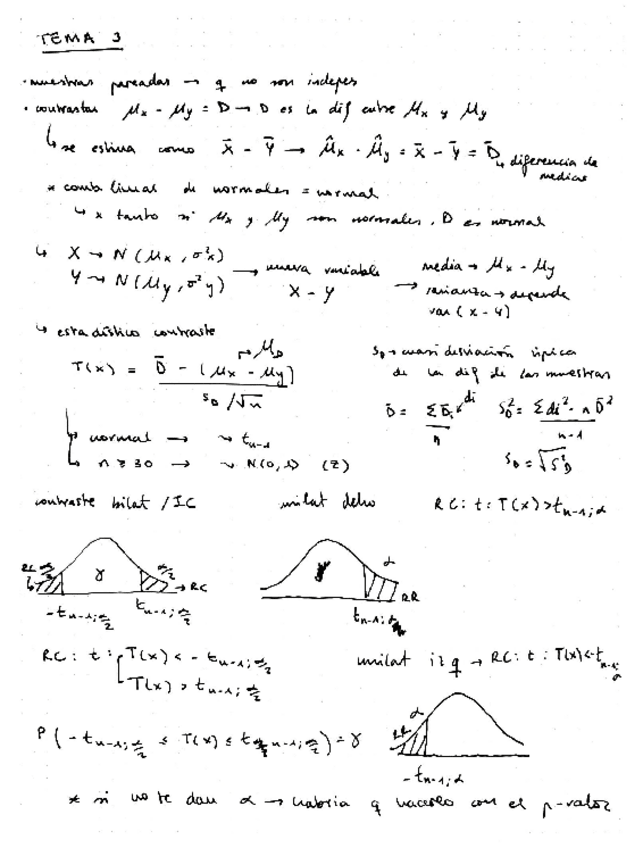 TEMA 3
· muestras pareadas → q no son indepes
· contrastar μx - μy = D → D es la dif entre μx y μy
↳ se estima como X̄ - Ȳ → μ̂x - μ̂y = X̄ - Ȳ = D̄ ↳ diferencia de medias
* comb lineal de normales = normal
↳ x tanto si μx y μy son normales, D es normal
↳ X → N(μx, σ²x)
Y → N(μy, σ²y)
→ nueva variable X - Y
→ media → μx - μy
varianza → depende var(x - y)
↳ estadístico contraste
T(x) = D̄ - (μx - μy) / sD/√n
→ μD
↳ normal → ~ tn-1
↳ n ≥ 30 → ~ N(0,1) (Z)
sD → cuasidesviación típica de la dif de las muestras
D̄ = ΣDi / n
di
SD² = Σdi² - n D̄² / n-1
SD = √S²D
contraste bilat / IC
unilat dcho RC: t: T(x) > tn-1;α
RC α/2 γ α/2 → RC
-tn-1;α/2 tn-1;α/2
α RR
tn-1;α
RC: t: T(x) < -tn-1;α/2
T(x) > tn-1;α/2
unilat izq → RC: t: T(x) < -tn-1;α
P(-tn-1;α/2 ≤ T(x) ≤ tn-1;α/2) = γ
RR α
-tn-1;α
* si no te dan α → habria q hacerlo con el p-valor